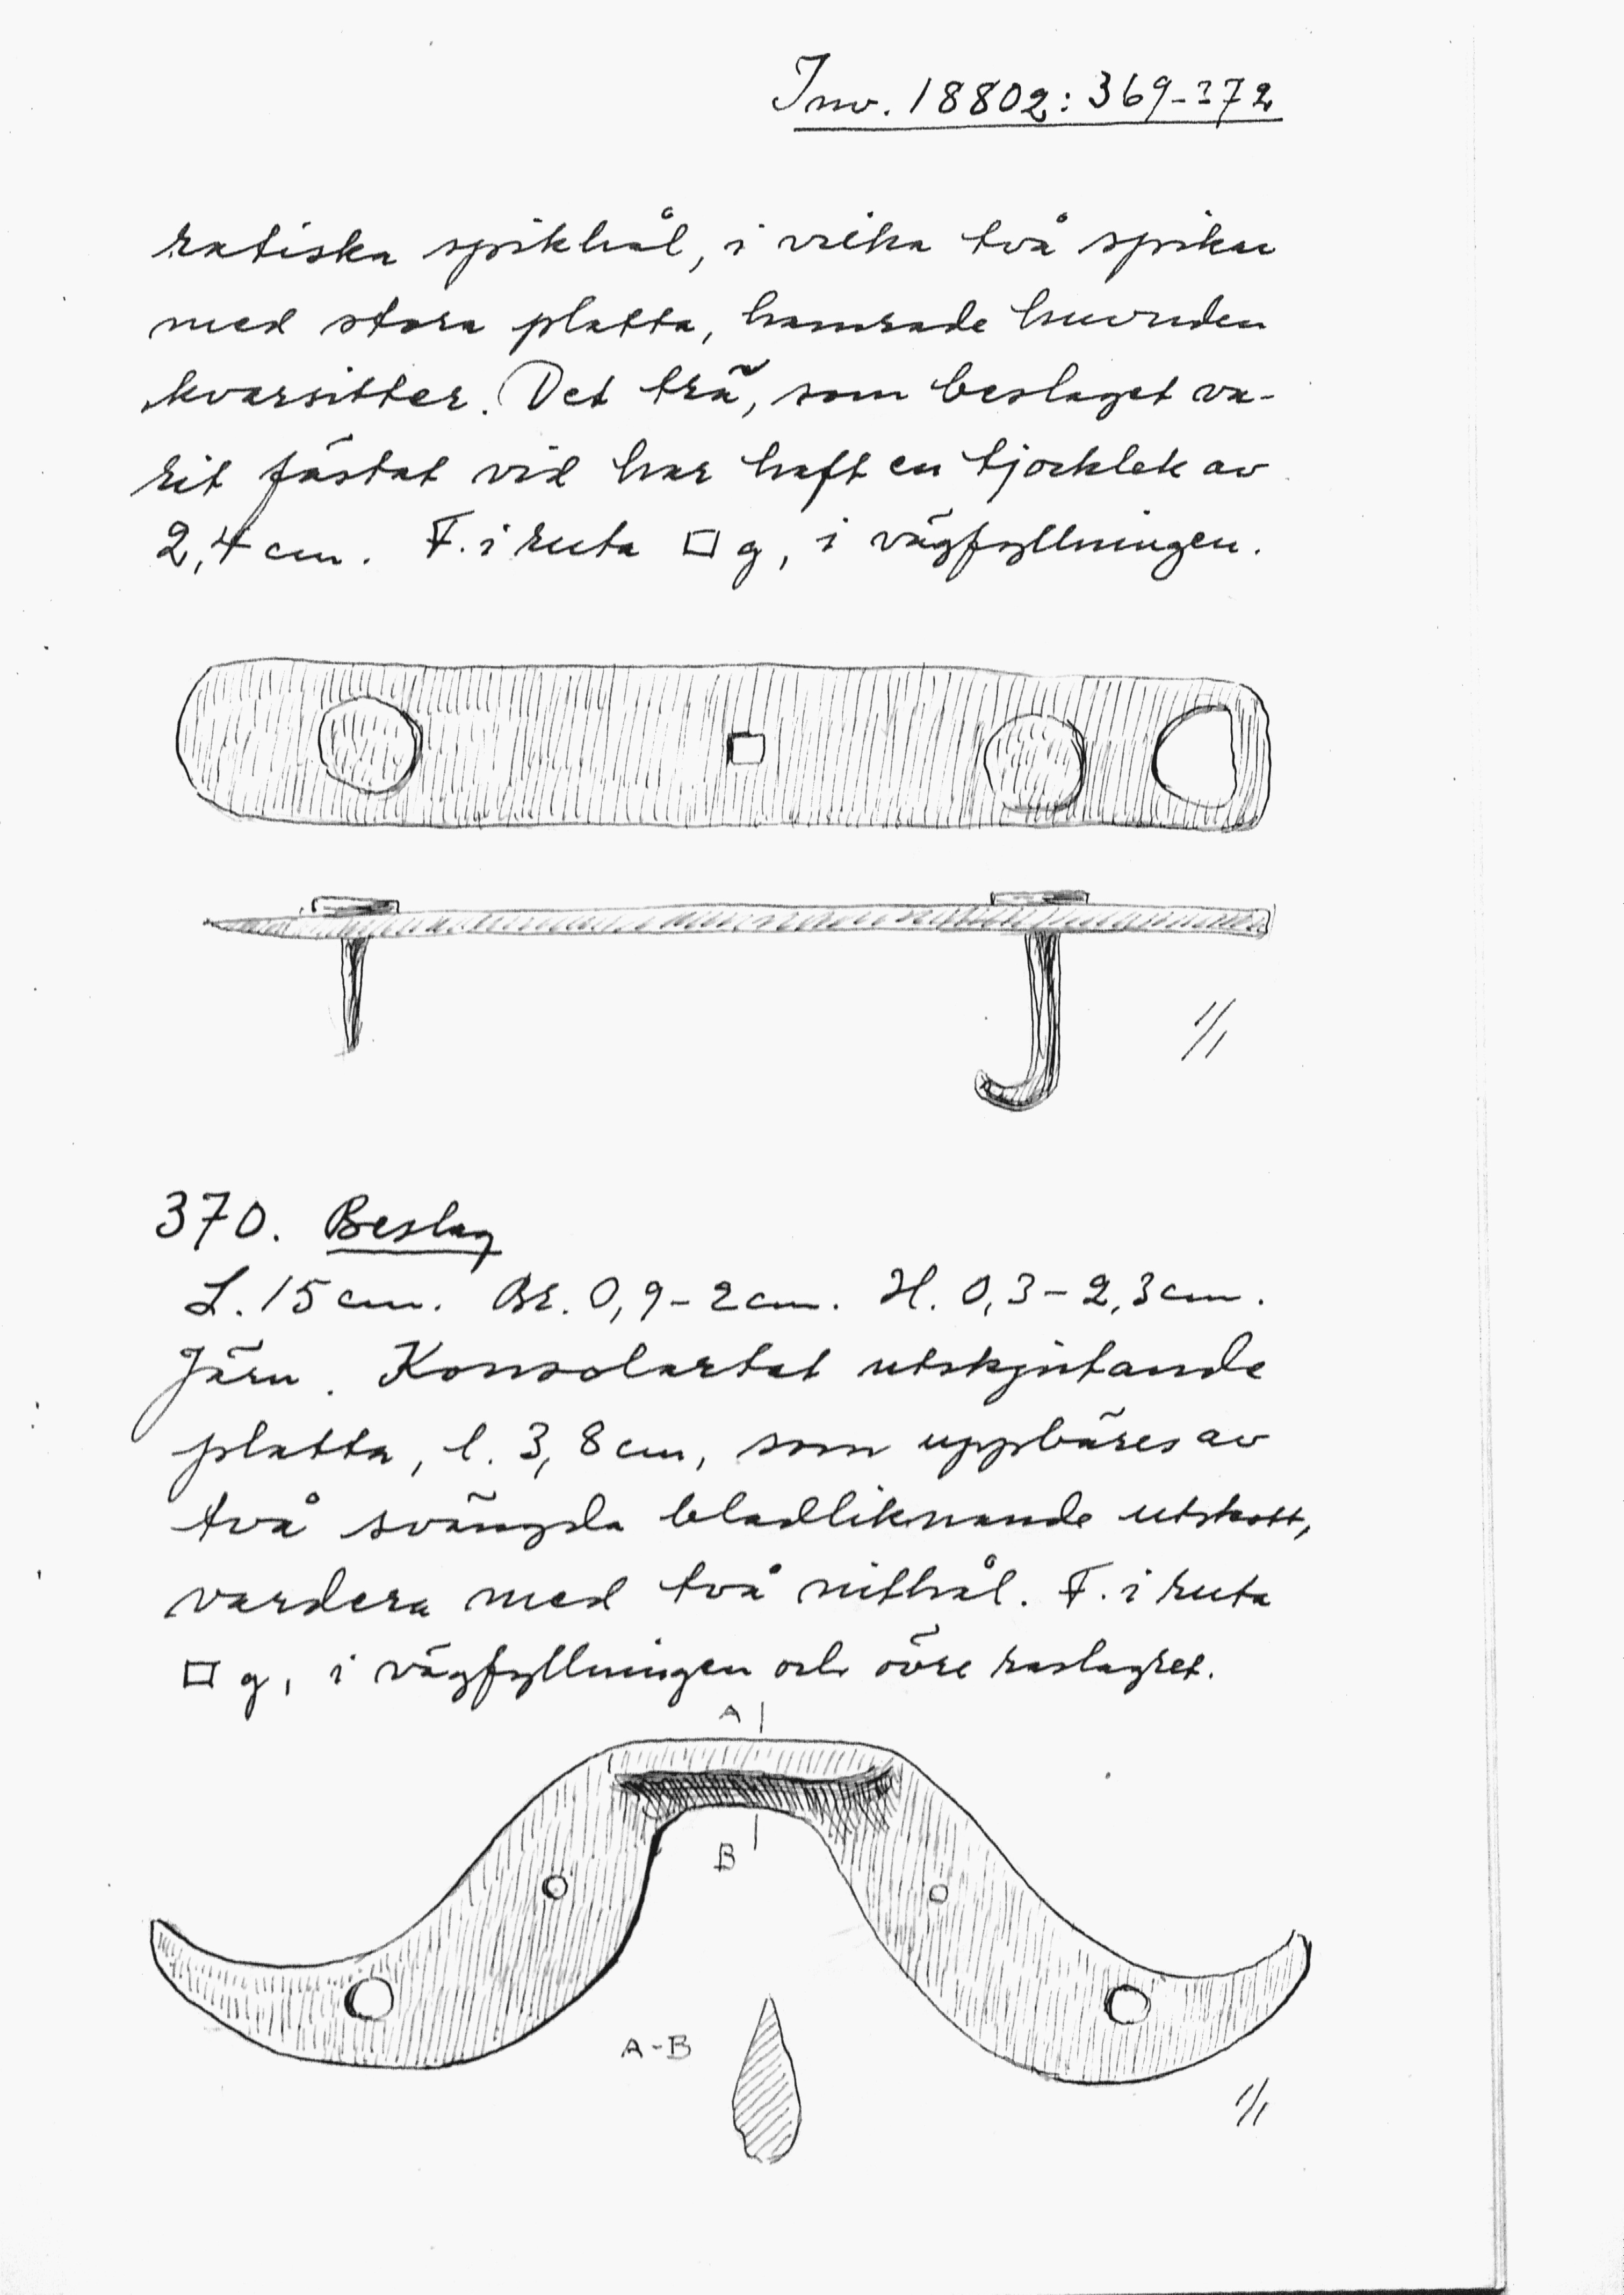 Inv. 18802: 369-372
ratiska spikhål, i vilka två spikar
med stora platta, hamrade huvuden
kvarsitter. Det trä, som beslaget va-
rit fästat vid har haft en tjocklek av
2,4 cm. F. i ruta □ g, i vägfyllningen.
1/1
370. Beslag
L. 15 cm. Br. 0,9-2 cm. H. 0,3-2,3 cm.
Järn. Konsolartat utskjutande
platta, l. 3,8 cm, som uppbäres av
två svängda bladliknande utskott,
vardera med två nithål. F. i ruta
□ g, i vägfyllningen och övre raslagret.
A
B
A-B
1/1